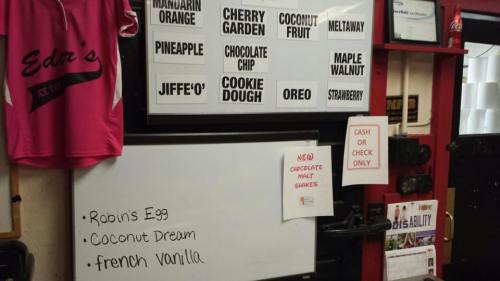 MANDARIN
ORANGE
CHERRY
GARDEN
COCONUT
FRUIT
MELTAWAY
PINEAPPLE
CHOCOLATE
CHIP
MAPLE
WALNUT
JIFFE'O'
COOKIE
DOUGH
OREO
STRAWBERRY
Eder's
ICE
NEW
CHOCOLATE
MALT
SHAKES
CASH
OR
CHECK
ONLY
• Robin's Egg
• Coconut Dream
• french vanilla
DISABILITY